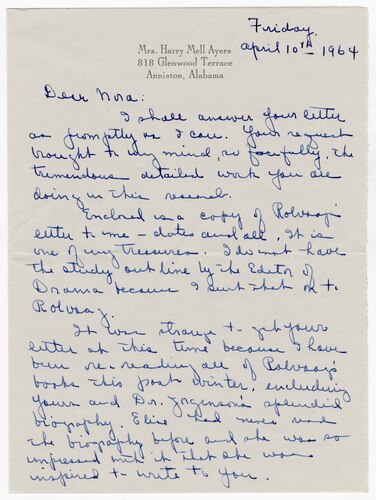 Friday.
April 10th 1964
Mrs. Harry Mell Ayers
818 Glenwood Terrace
Anniston, Alabama
Dear Nora:
I shall answer your letter
as promptly as I can. Your request
brought to my mind, so forcefully, the
tremendous detailed work you are
doing in this research.
Enclosed is a copy of Rolvaag's
letter to me - dates and all. It is
one of my treasures. I do not have
the study out line by the Editor of
Drama because I sent that on to
Rolvaag.
It was strange to get your
letter at this time because I have
been re-reading all of Rolvaag's
books this past winter, including
yours and Dr. Jorgenson's splendid
biography. Elise had never read
the biography before and she was so
impressed with it that she was
inspired to write to you.